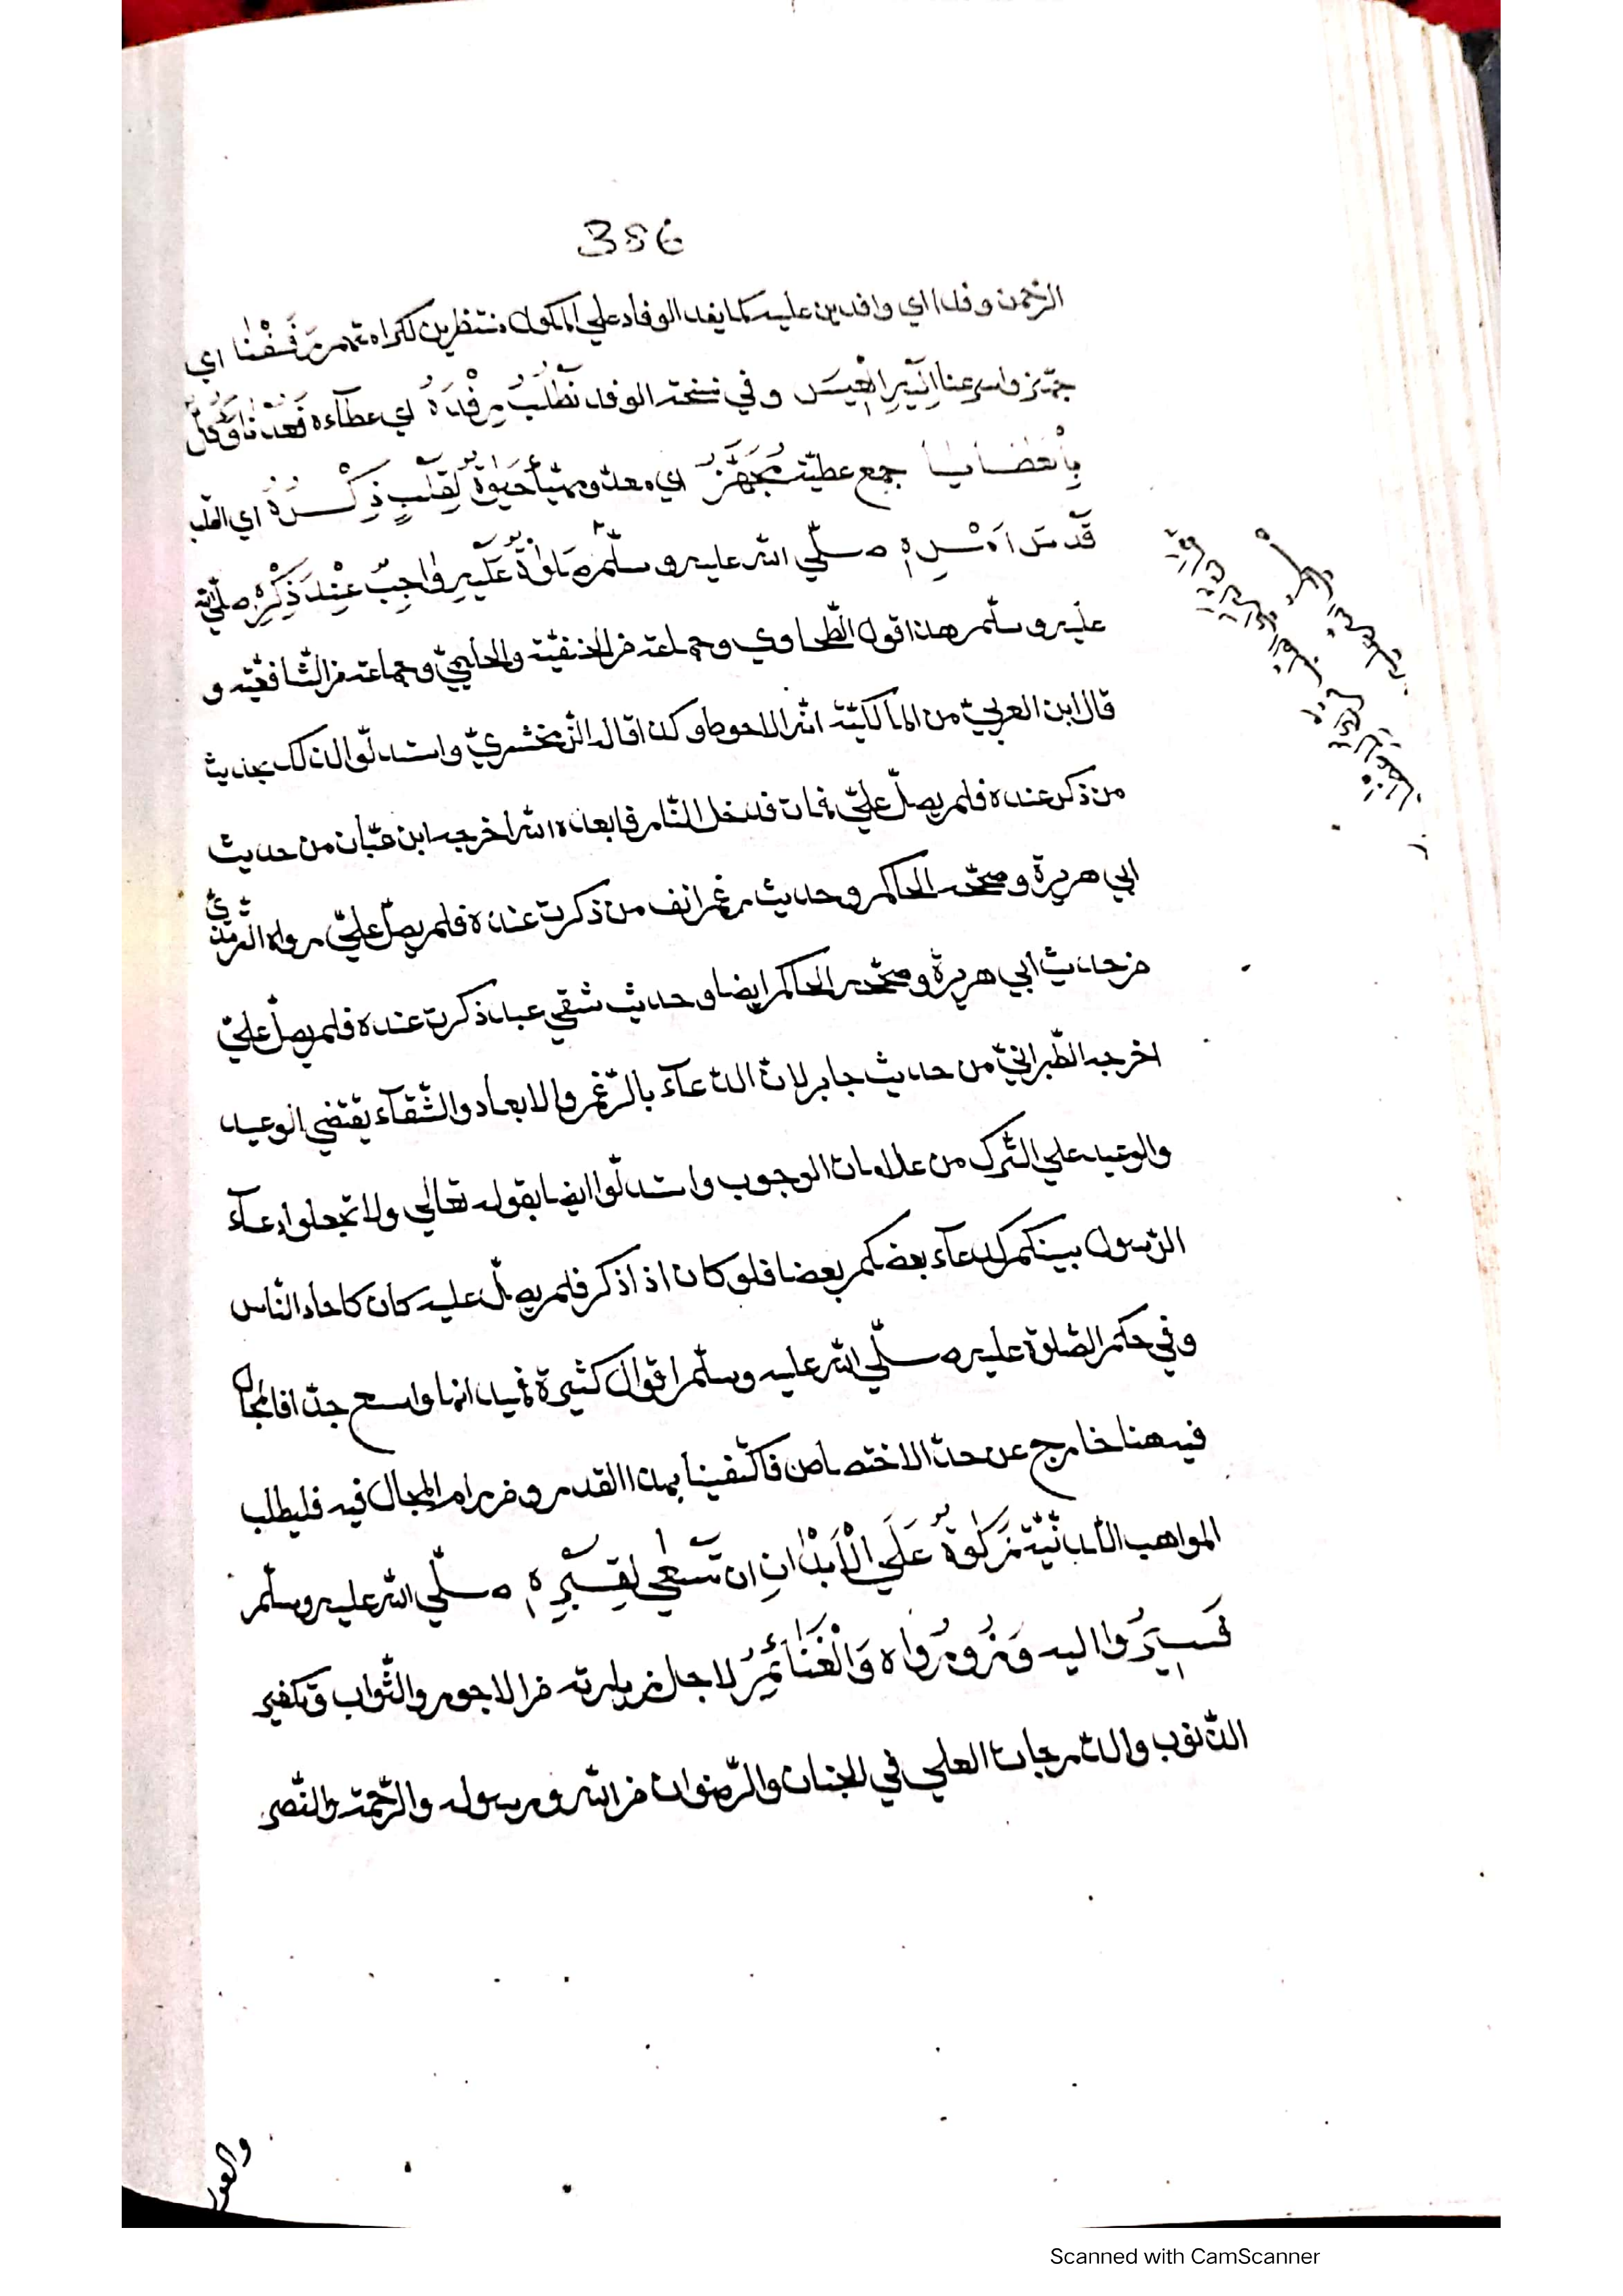 386
الرّحمن وفدا اي وافدين عليه كما يفد الوفاد علي الملوك منتظرين لكرامتهم زَفَفْنَا اي
جهّز واسرعنا اِلَيْهِ الْعِيسَ وفي نسخة الوفد نَطْلُبُ رِفْدَهُ اي عطآءه فَعُدْنَا وَكُلٌّ
بِالْعَطَايَا جمع عطيّة مُجَهَّزُ اي معدّ ومهيّأ حَيٰوةٌ لِقَلْبٍ ذِكْرُهُ اي القلب
قَدْ صلّي الله عليه وسلّم صَلٰوةٌ عَلَيْهِ وَاجِبٌ عِنْدَ ذِكْرِهٖ صلّي الله
عليه وسلّم هذا قول الطّحاوي وجماعة من الحنفيّة والحليميّ وجماعة من الشّافعيّة و
قال ابن العربيّ من المالكيّة انّه الاحوط وكذا قاله الزّمخشريّ واستدلّوا لذلك بحديث
من ذكرت عنده فلم يصلّ عليّ فمات فدخل النّار فابعده الله اخرجه ابن حبّان من حديث
ابي هريرة وصحّحه الحاكم وحديث رغم انف من ذكرت عنده فلم يصلّ عليّ رواه الترمذيّ
من حديث ابي هريرة وصحّحه الحاكم ايضا وحديث شقي عبد ذكرت عنده فلم يصلّ عليّ
اخرجه الطّبرانيّ من حديث جابر لانّ الدّعآء بالرّغم والابعاد والشّقآء يقتضي الوعيد
والوعيد علي التّرك من علامات الوجوب واستدلّوا ايضا بقوله تعالي ولا تجعلوا دعآء
الرّسول بينكم كدعآء بعضكم بعضا فلو كان اذا ذكر فلم يصلّ عليه كان كاحاد النّاس
وفي حكم الصّلوة عليه صلّي الله عليه وسلّم اقوال كثيرة واسع جدّا فالمجال
فيه هنا خارج عن حدّ الاختصاص فاكتفينا بهذا القدر ومن رام المجال فيه فليطلب
المواهب اللّدنّيّة زَكٰوةٌ عَلَي الْاَبْدَانِ ان تَسْعٰي لِقَبْرِهٖ صلّي الله عليه وسلّم
فَسِيرُوا اليه وَزُورُوا ه وَالْغَنَائِمُ لاجل زيارته من الاجور والثّواب وتكفير
الذّنوب والدّرجات العلي في الجنان والرّضوان من الله ورسوله والرّحمة والنّصر
Scanned with CamScanner